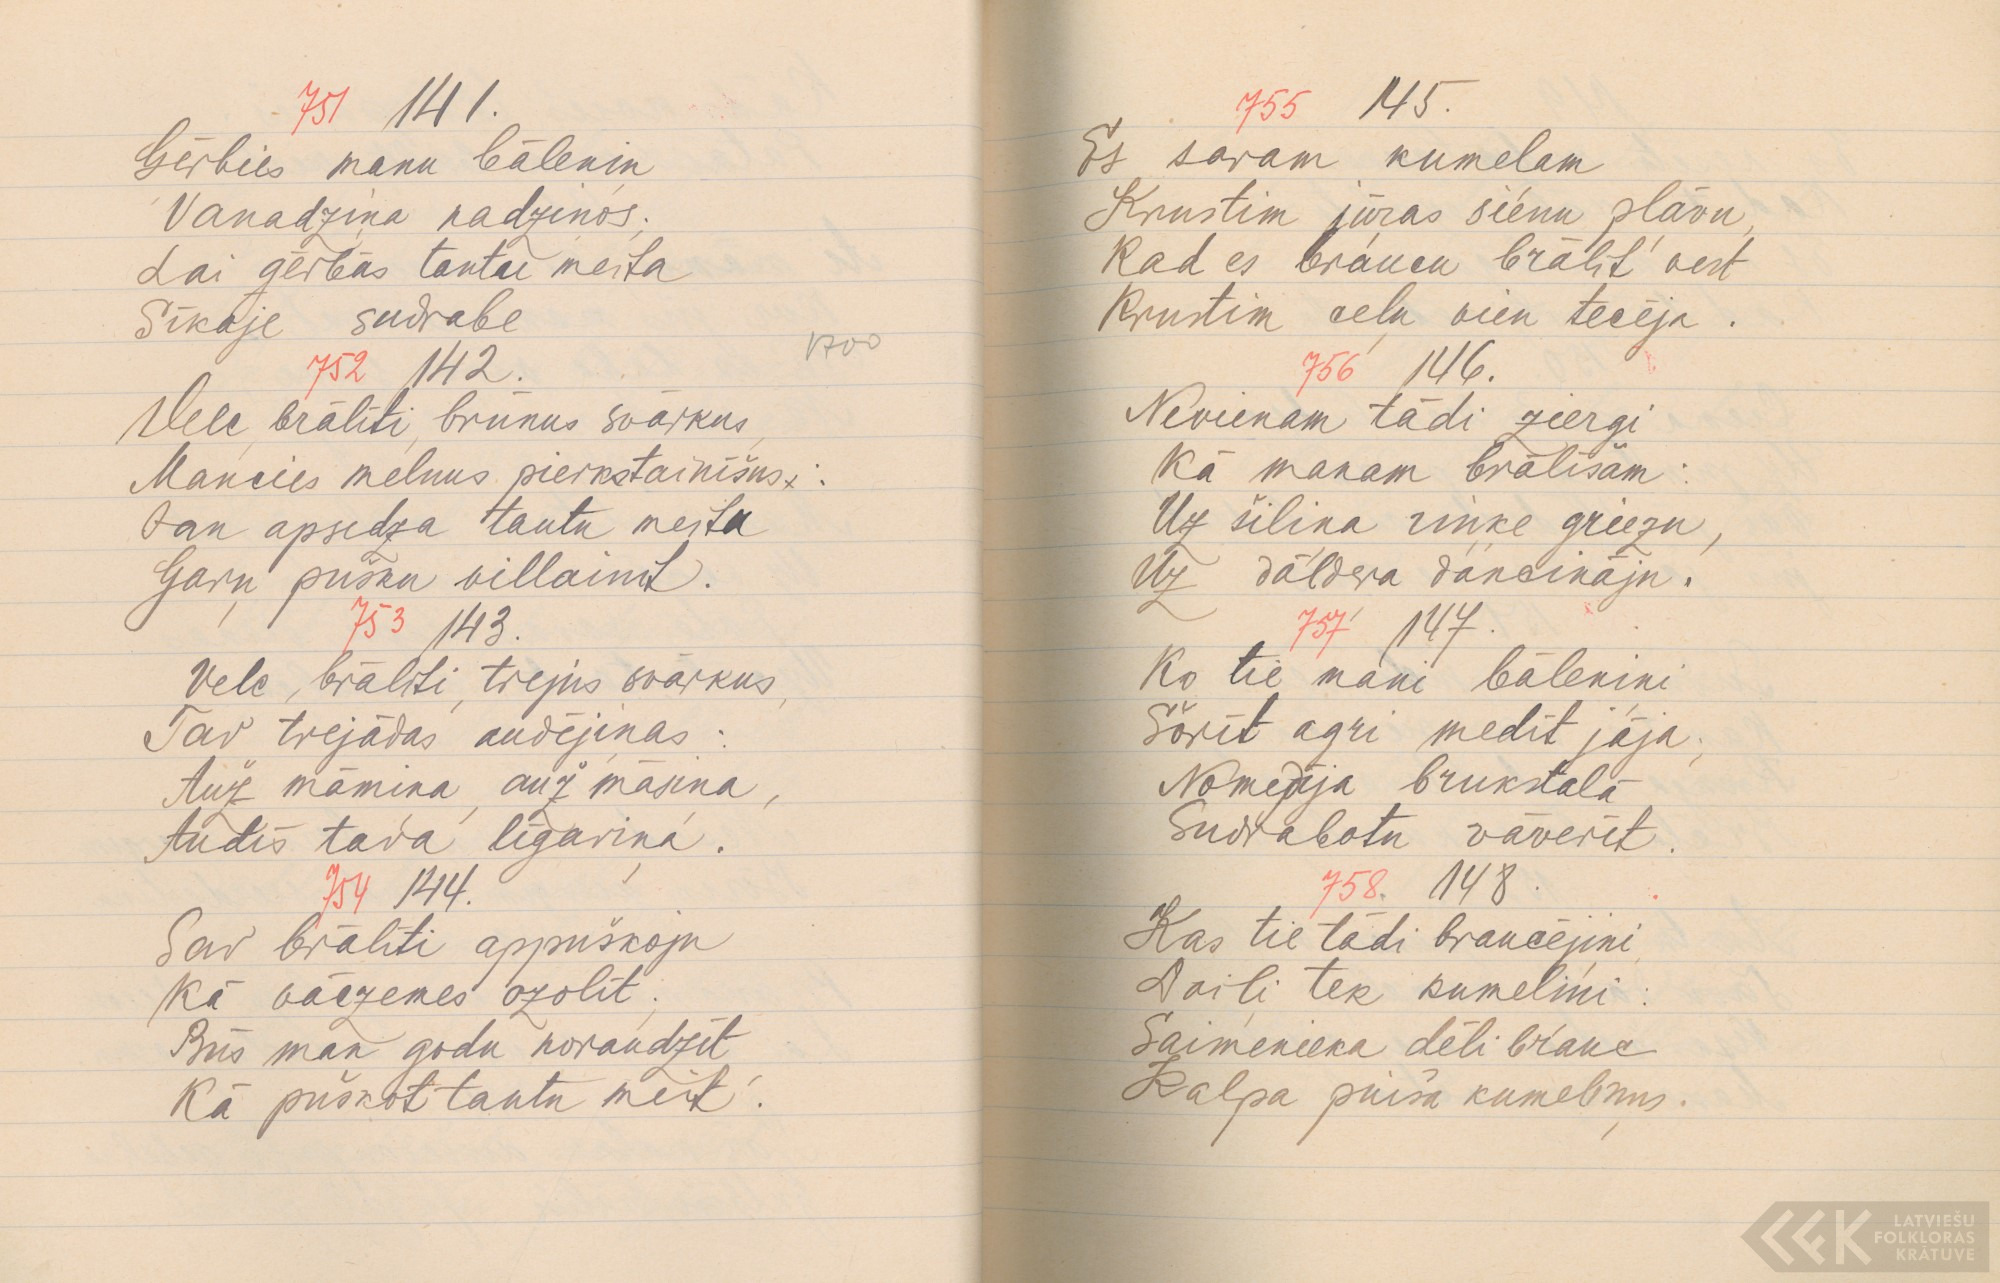 751 141.
Gērbies manu bāleniņ
Vanadziņa nadziņos;
Lai gērbās tautu meita
Sīkaje sudrabe
752 142.
1700
Velc, brālīti, brūnus svārkus,
Maucies melnus pierkstainīšus:
Jau apsedza tautu meita
Gaŗu pušķu villainīt.
753 143.
Velc, brālīti, trejus svārkus,
Tav trejādas audējiņas:
Auž māmiņa, auž māsiņa,
Audīs tava līgaviņa.
754 144.
Sav brālīti appuškoju
Kā vāczemes ozolīt;
Būs man godu noraudzīt
Kā puškot tautu meit'.
755 145.
Es savam kumelam
Krustim jūŗas sienu plāvu,
Kad es braucu brālīt' vest
Krustim ceļu vien tecēja.
756 146.
Nevienam tādi ziergi
Kā manam brālīšam:
Uz šiliņa riņķe griezu,
Uz dāldera dancināju.
757 147.
Ko tie mani bāleniņi
Šorīt agri medīt jāja;
Nomedīja brukstalā
Sudrabotu vāverīt.
758. 148.
Kas tie tādi braucējiņi,
Daiļi tek kumeliņi:
Saimenieka dēli brauc
Kalpa puiša kumeliņus.
LATVIEŠU
FOLKLORAS
KRĀTUVE